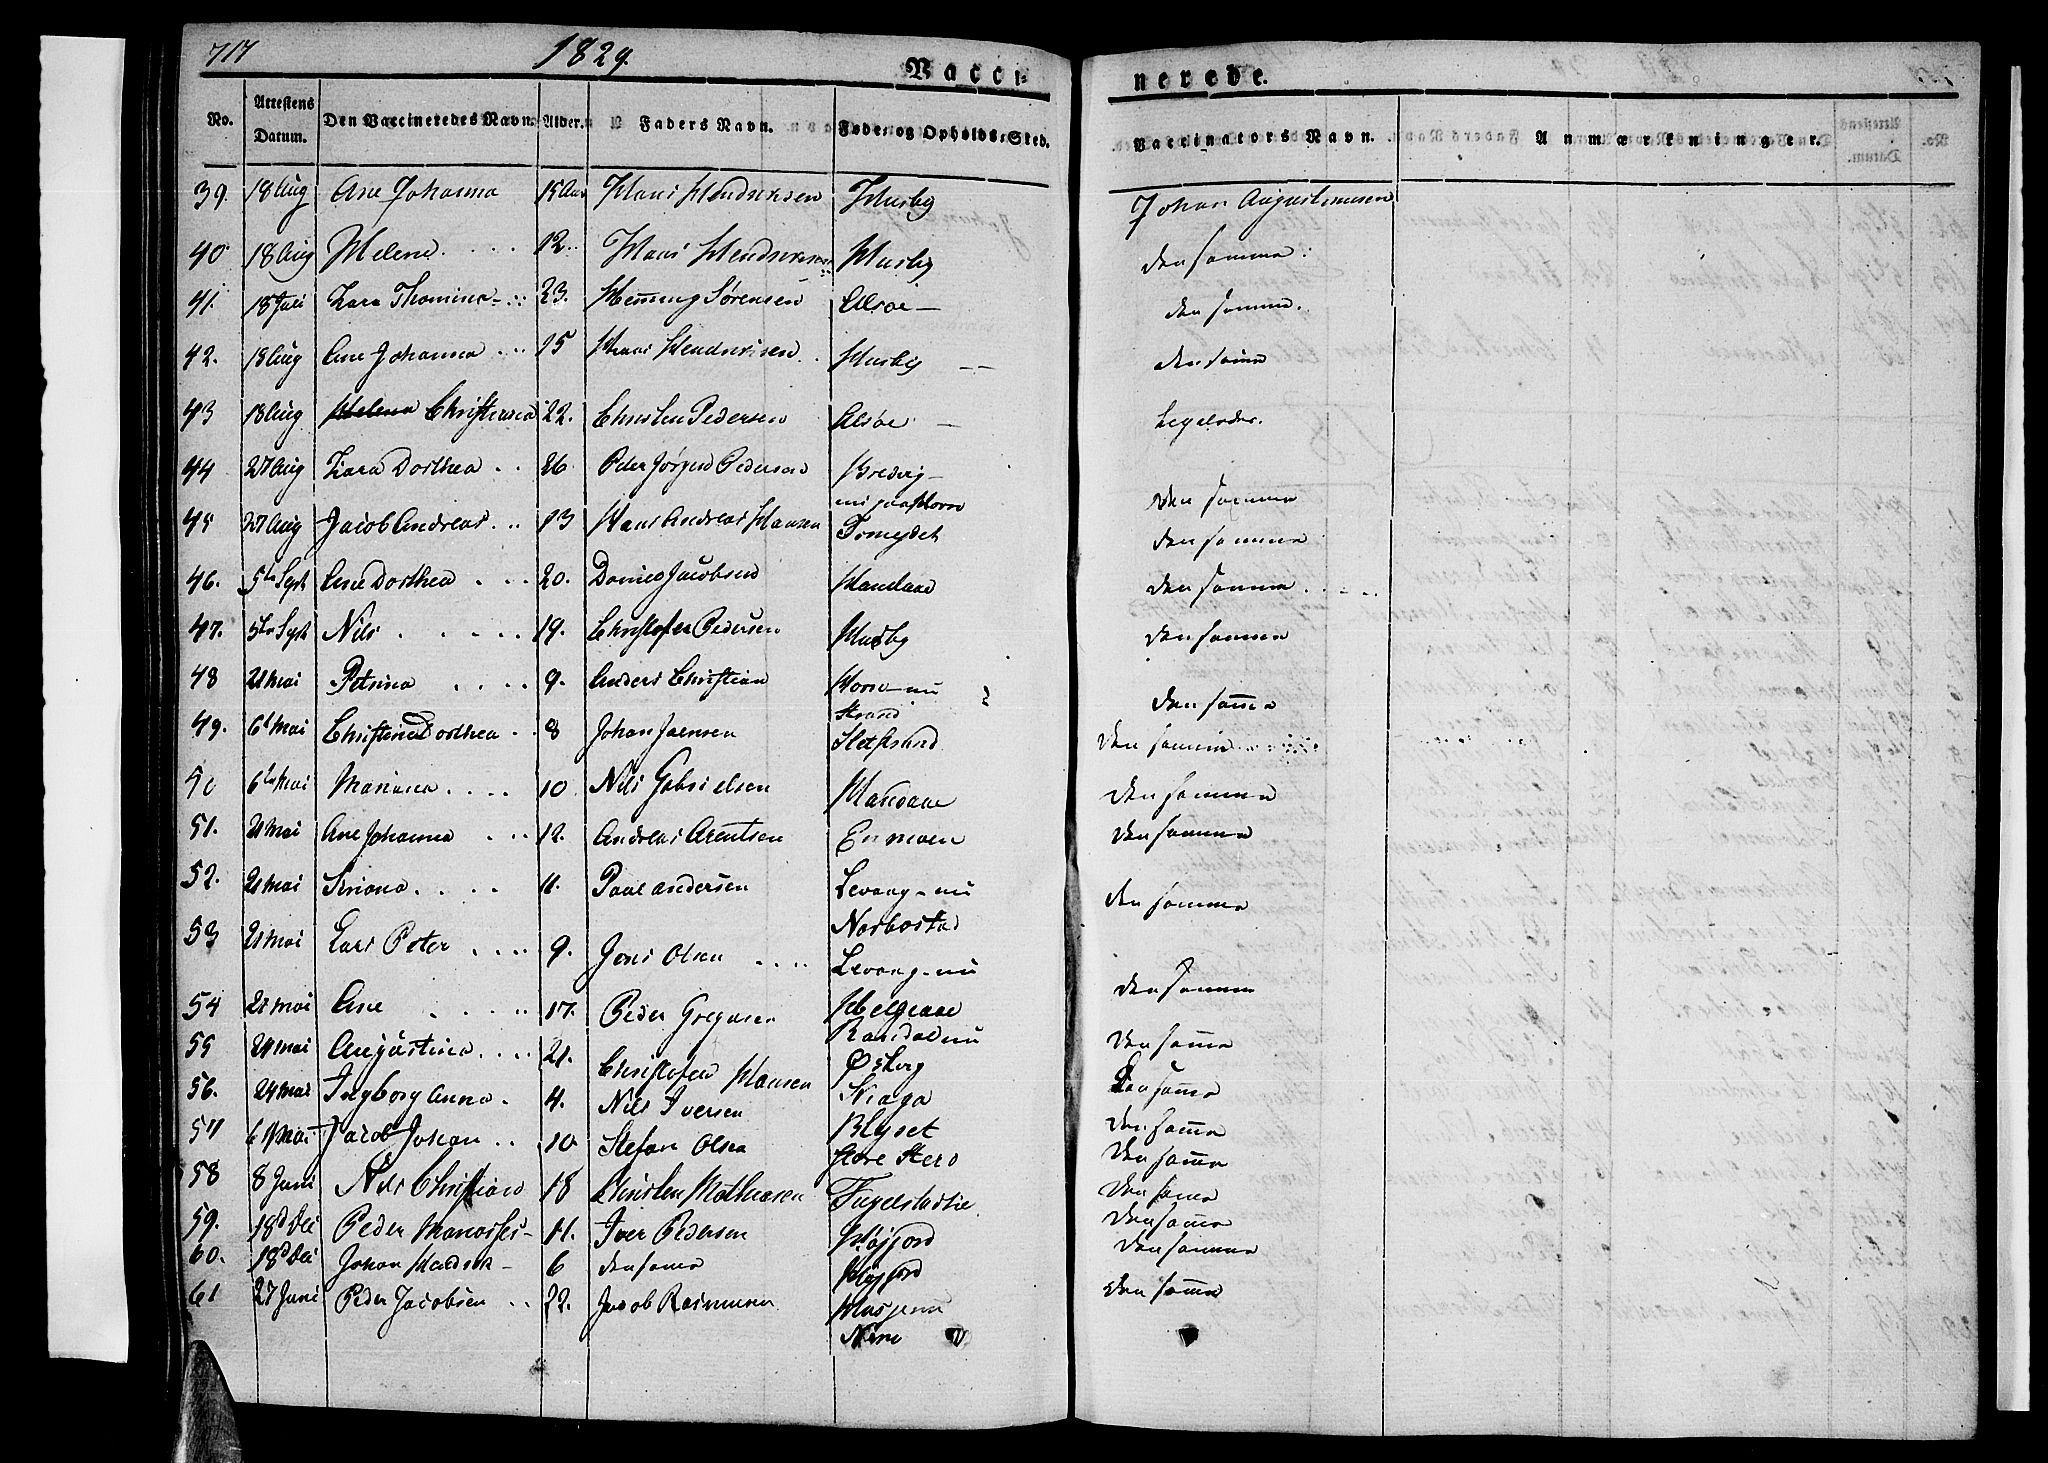 717 1829. Vacci-
nerede.
No. Attestens Datum. Den Vaccineredes Navn. Alder. Faders Navn. Føde- og Opholds-Sted. Vaccinators Navn. Anmærkninger.
39. 18 Aug Ane Johanna 15 Aar Hans Hendriksen Husby Johan Augustinusen
40 18 Aug Helene 12 Hans Hendriksen Husby den samme
41. 18 Juli Lara Thomina 23. Heming Sørensen Alsøe den samme.
42. 18 Aug Ane Johanna 15 Hans Hendriksen Husby den samme
43 18 Aug Helena Christiana 22. Christen Pedersen Alsøe
44 27 Aug Zara Dorthea 26 Peder Jørgen Pedersen Bredvig den samme
nu paa Horn
45 27 Aug Jacob Andreas 13 Hans Andreas Hansen Tomejdet den samme
46. 5te Sept Ane Dorthea 20. Daniel Jacobsen Handaae den samme
47. 5te Sept Nils 19. Christofer Pedersen Husby den samme
48 21 Mai Petrina 9. Anders Christian Horse nu den samme
Strand
49. 6te Mai Christina Dorthea 8 Johan Jaensen Sletstrand den samme
50 6te Mai Mariana 10 Nils Gabrielsen Handaae den samme
51. 21 Mai Ane Johanna 12. Andreas Arentsen Enmoen den samme
52. 21 Mai Seriana 11. Paul Andersen Levang nu den samme
Norbostad
53 21 Mai Lars Peter 9. Jens Olsen Levang nu den samme
54 21 Mai Ane 17. Peder Gregusen Helgeaae
Ransdal nu
55 24 Mai Augustina 21. Christofer Hansen Østerg den samme
56. 24 Mai Ingborg Anna 4. Nils Iversen Kiaga den samme
57 6te Mai Jacob Johan 10 Stefan Olsen Blyset den samme
Store Stero den samme
58 8 Juni Nils Christian 18 Christen Mathiasen Fugelstadlie den samme
59. 18d Dec Peder Manasses 11. Iver Pedersen Højfjord den samme
60. 18d Dec Johan Hendrik 6 den samme Højfjord den samme
61 27 Juni Peder Jacobsen 22. Jacob Rasmusen den samme